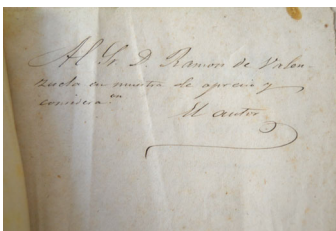 Al Sr. D. Ramon de Valen-
zuela en muestra de aprecio y
considera.on
El autor